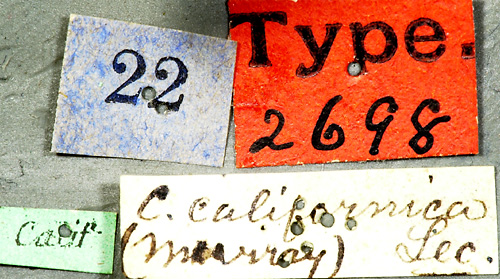 22
Type.
2698
Calif.
C. californica
(Murray) Lec.